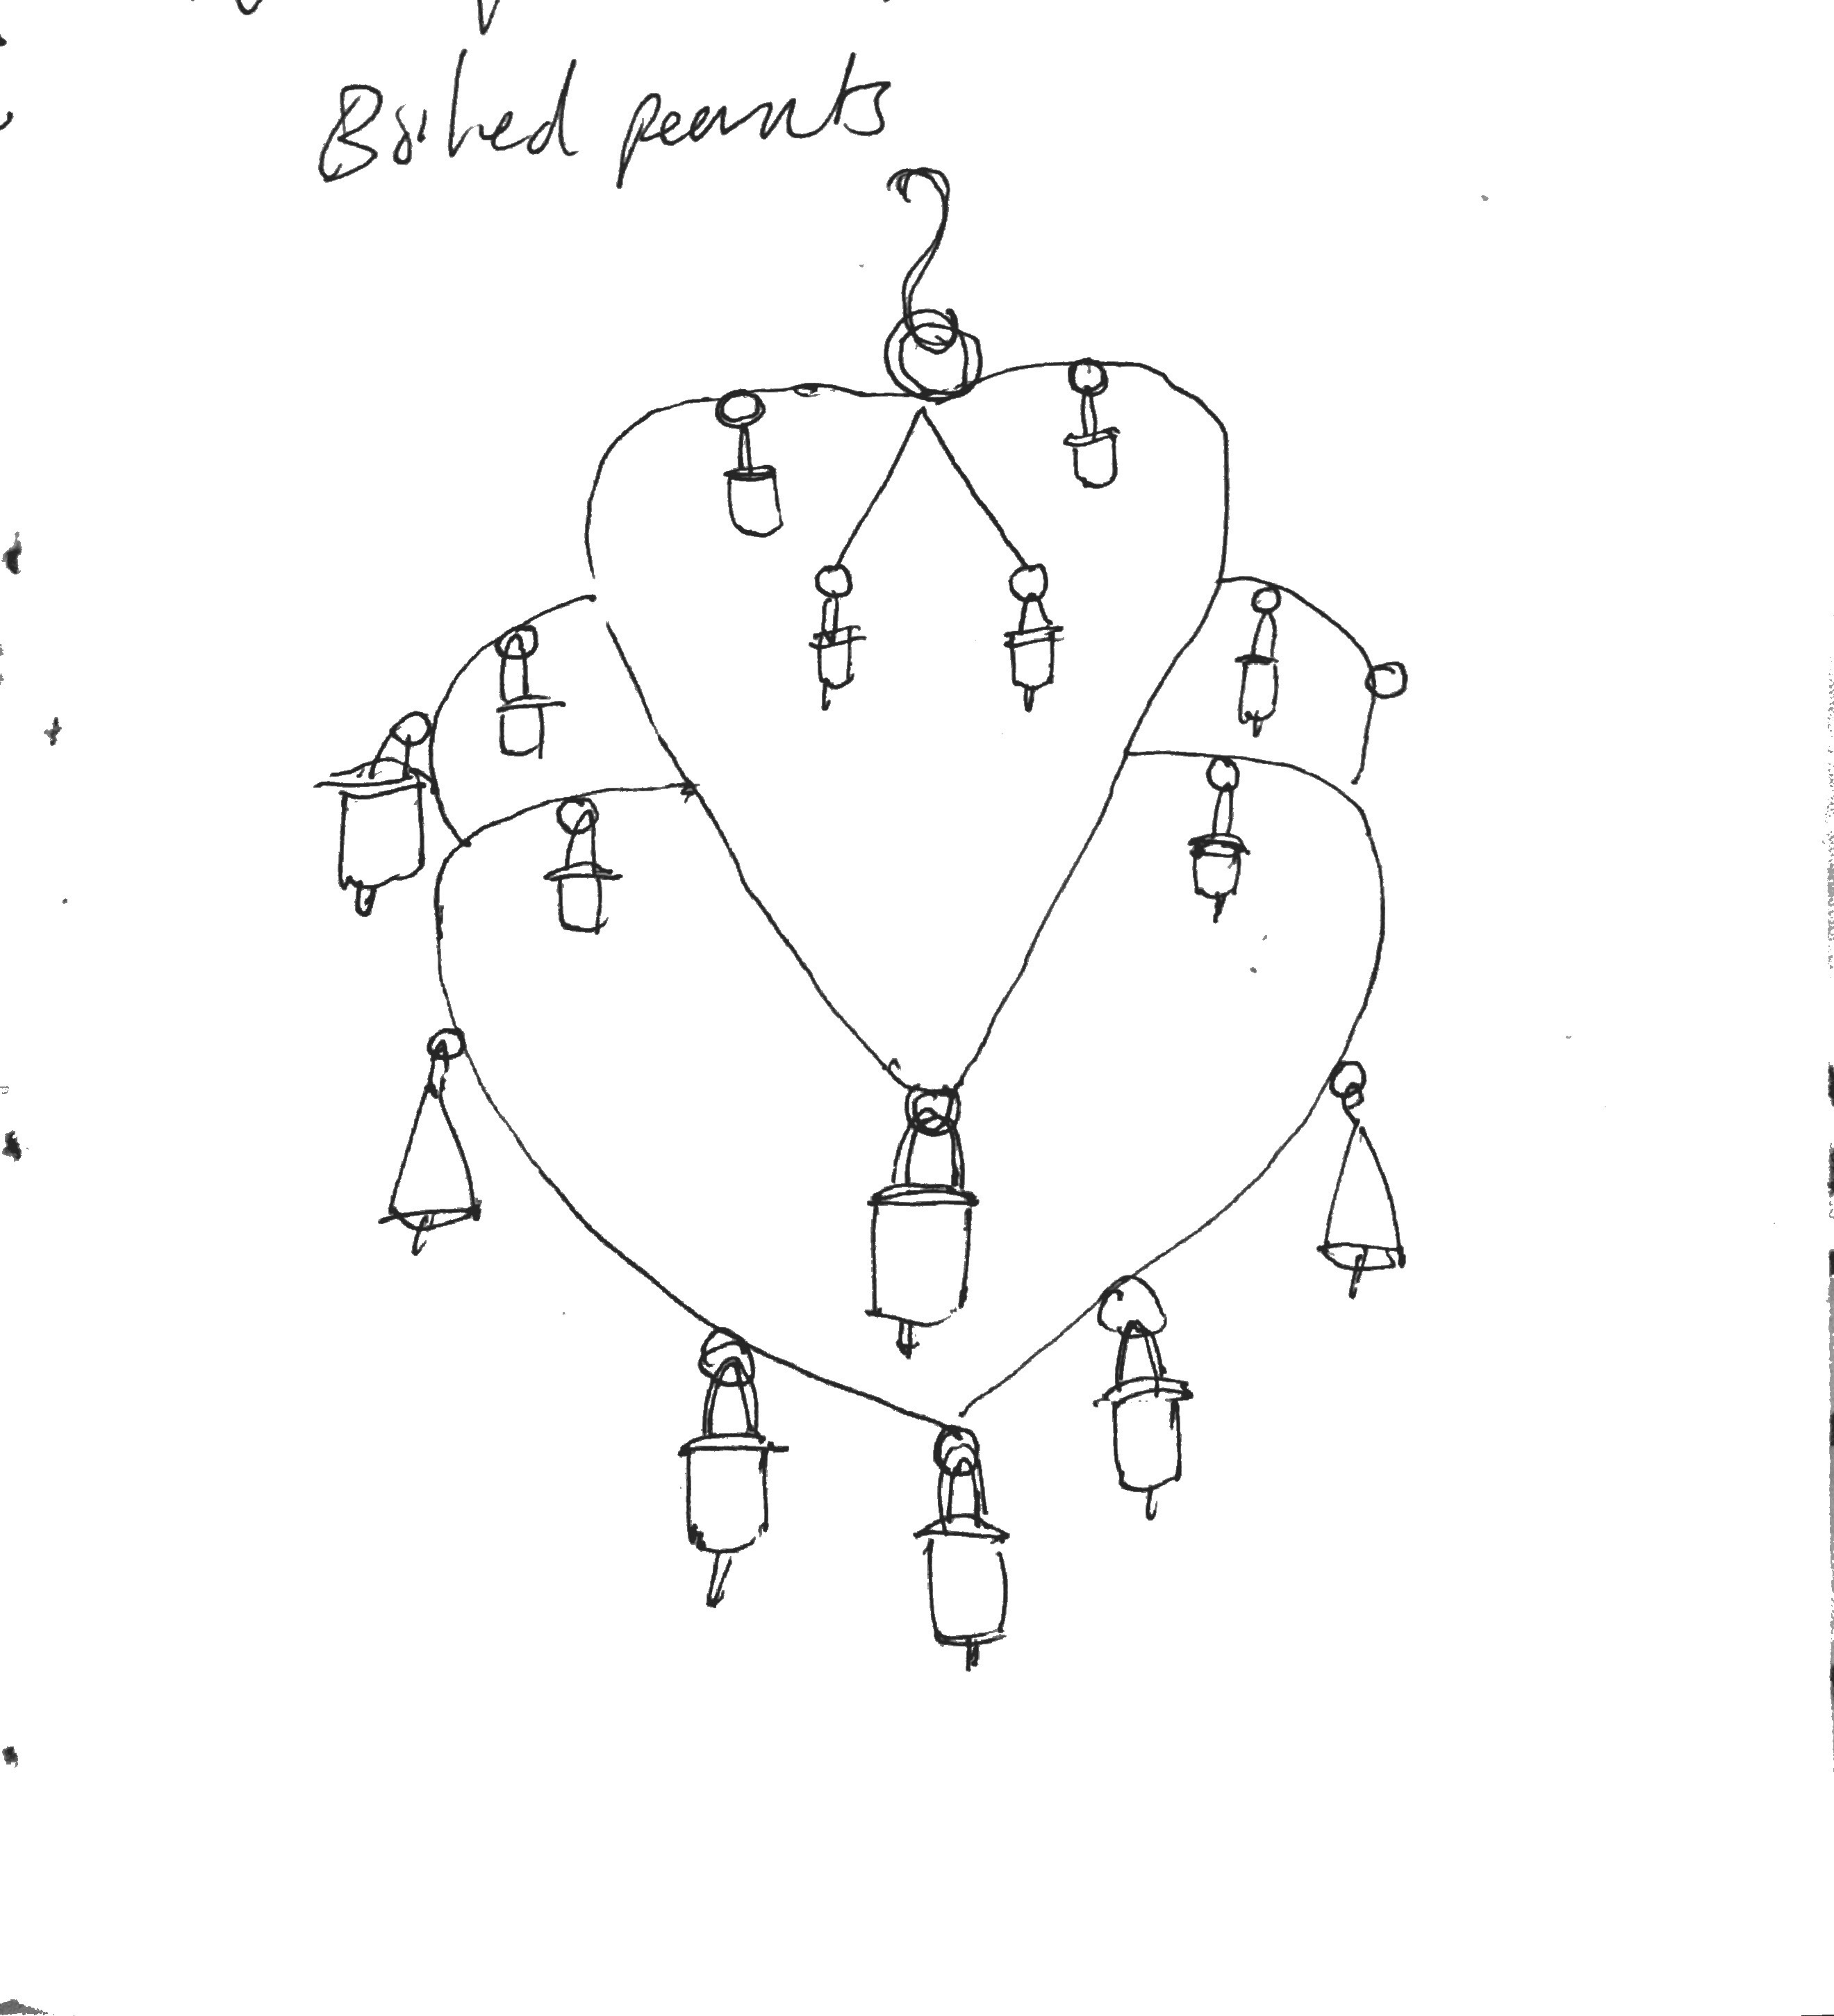 Boiled peanuts